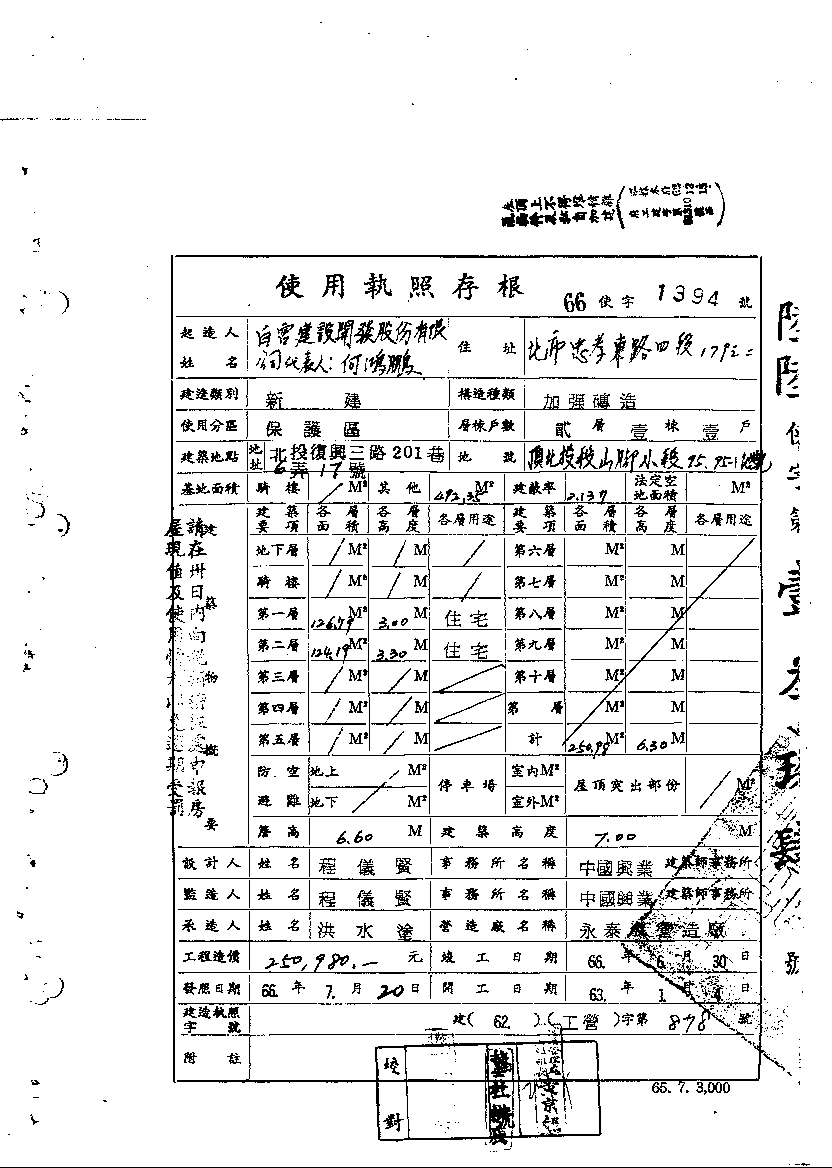 使用執照存根 66 使字 1394 號
起造人姓名 白雲建設開發股份有限公司代表人:何鴻鵬 住址 北市忠孝東路四段179之二
建造類別 新建 構造種類 加強磚造
使用分區 保護區 層棟戶數 貳層壹棟壹戶
建築地點 地址 北投復興三路201巷6弄17號 地號 頂北投段山腳小段95.95-1地號
基地面積 騎樓 / M² 其他 492.35 M² 建蔽率 2.137 法定空地面積 M²
建築要項 各層面積 各層高度 各層用途 建築要項 各層面積 各層高度 各層用途
地下層 / M² / M / 第六層 M² M
騎樓 / M² / M / 第七層 M² M
第一層 126.79 M² 3.00 M 住宅 第八層 M² M
第二層 124.19 M² 3.30 M 住宅 第九層 M² M
第三層 / M² / M 第十層 M² M
第四層 / M² / M 第 層 M² M
第五層 / M² / M 計 250.98 M² 6.30 M
防空避難 地上 M² 停車場 室內M² 屋頂突出部份 / M²
地下 M² 室外M²
簷高 6.60 M 建築高度 7.00 M
建築物概要
設計人 姓名 程儀賢 事務所名稱 中國興業建築師事務所
監造人 姓名 程儀賢 事務所名稱 中國興業建築師事務所
承造人 姓名 洪水塗 營造廠名稱 永泰營造廠
工程造價 250,980.— 元 竣工日期 66.年 6.月 30 日
發照日期 66.年 7.月 20 日 開工日期 63.年 1.月 4 日
建造執照字號 建(62.)(工營)字第 878 號
附註
校對
65.7.3,000
請在卅日內向
陸陸使字第壹
號